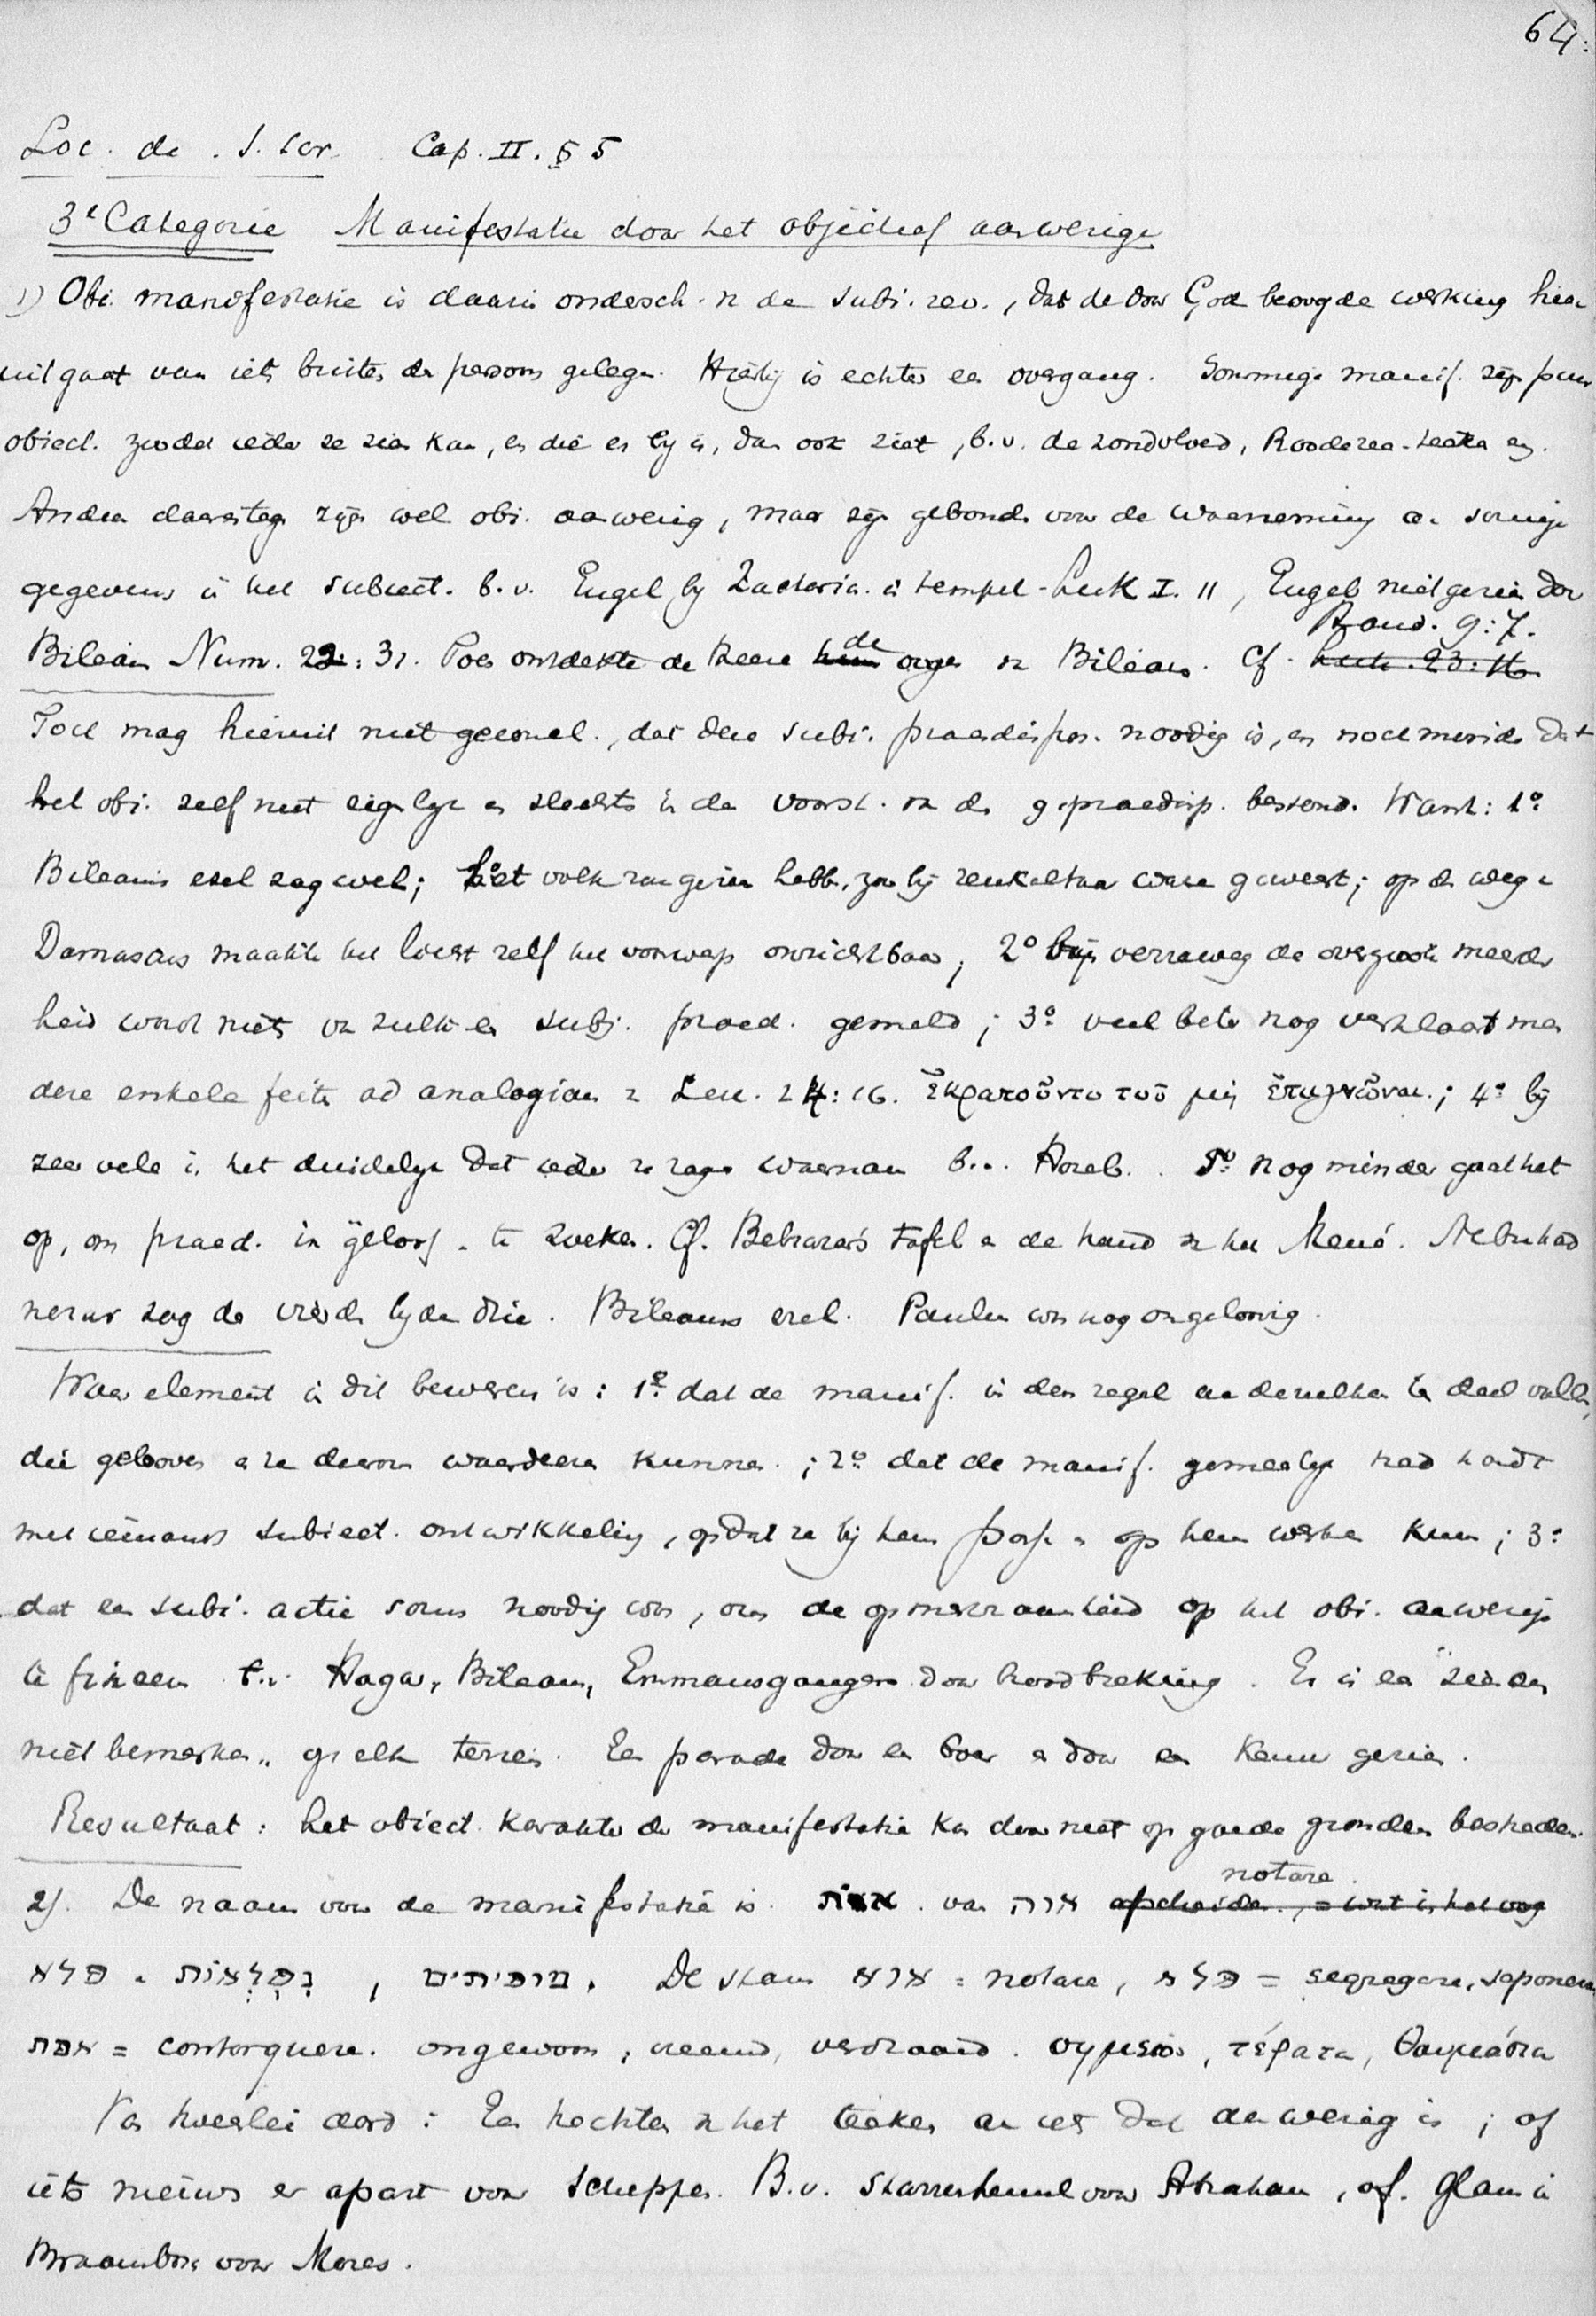 64.
Loc. de. S. Scr. Cap. II. § 5
3e Categorie Manifestatie door het objectief aanwezige
1) Obi. manifestatie is daarin ondersch. v. de subi. rev., dat de door God beoogde werking hier
uitgaat van iets buiten den persoon gelegen. Hierbij is echter een overgang. Sommige manif. zijn puur
obiect. zoodat ieder ze zien kan, en die er bij is, dan ook ziet, b.v. de zondvloed, Roodezee
Andere daarentegen zijn wel obi. aanwezig, maar zijn gebonden voor de waarneming aan sommige
gegevens in het subiect. b.v. Engel bij Zacharia in tempel - Luk I. 11, Engel niet gezien door
Hand. 9:7.
Bileam Num. 22: 31. Toen ontdekte de Heere de oogen v. Bileam. Cf. Luk. 23:16
Toch mag hieruit niet geconcl., dat deze subi. praedispos. noodig is, en noch minder dat
het obi. zelf niet eigenlijk en slechts in de voorst. v. den gepraedisp. bestond. Want: 1o
Bileams ezel zag wel; het volk zou gezien hebb., zoo bij reukaltaar ware geweest; op den weg n.
Damascus maakte het licht zelf het voorwerp onzichtbaar; 2o bij verreweg de overgroote meerder
heid wordt niets van zulk een subj. praed. gemeld; 3o veel beter nog verklaart men
deze enkele feiten ad analogiam v. Luc. 24:16. ἐκρατοῦντο τοῦ μὴ ἐπιγνῶναι; 4o bij
zeer vele is het duidelijk dat ieder ze zag en waarnam b.v. Horeb. 5o Nog minder gaat het
op, om praed. in geloof te zoeken. Cf. Belsazar's tafel en de hand v. het Mené. Nebukad
nezar zag de vierde bij de drie. Bileams ezel. Paulus was nog ongeloovig.
Waar element in dit beweren is: 1o dat de manif. in den regel aan dezulken ten deel vallen,
die gelooven en ze daarom waardeeren kunnen; 2o dat de manif. gemeenlijk tred houdt
met iemands subiect. ontwikkeling, opdat ze bij hem passe en op hem werken kunne; 3o
dat een subi. actie soms noodig was, om de opmerkzaamheid op het obi. aanwezige
te fixeeren b.v. Hagar, Bileam, Emmausgangers door broodbreking. Er is een "zien en
niet bemerken" op elk terrein. Een parade door een boer en door een kenner gezien.
Resultaat: het obiect. karakter der manifestatie kan dus niet op goede gronden bestreden.
notare
2). De naam voor de manifestatie is אות van אוה afscheiden, = wat in het oog
פלא. נִפְלָאוֹת, מופיתים. De stam אוא = notare, פלא = segregare, seponere
אפת = contorquere. ongewoon, vreemd, verdraaid. σημεῖον, τέρατα, θαυμάσια
Van tweeërlei aard: Een hechten v. het teeken aan iets dat aanwezig is; of
iets nieuws er apart voor scheppen. B.v. starrenhemel voor Abraham, of. glans in
Braambos voor Mozes.